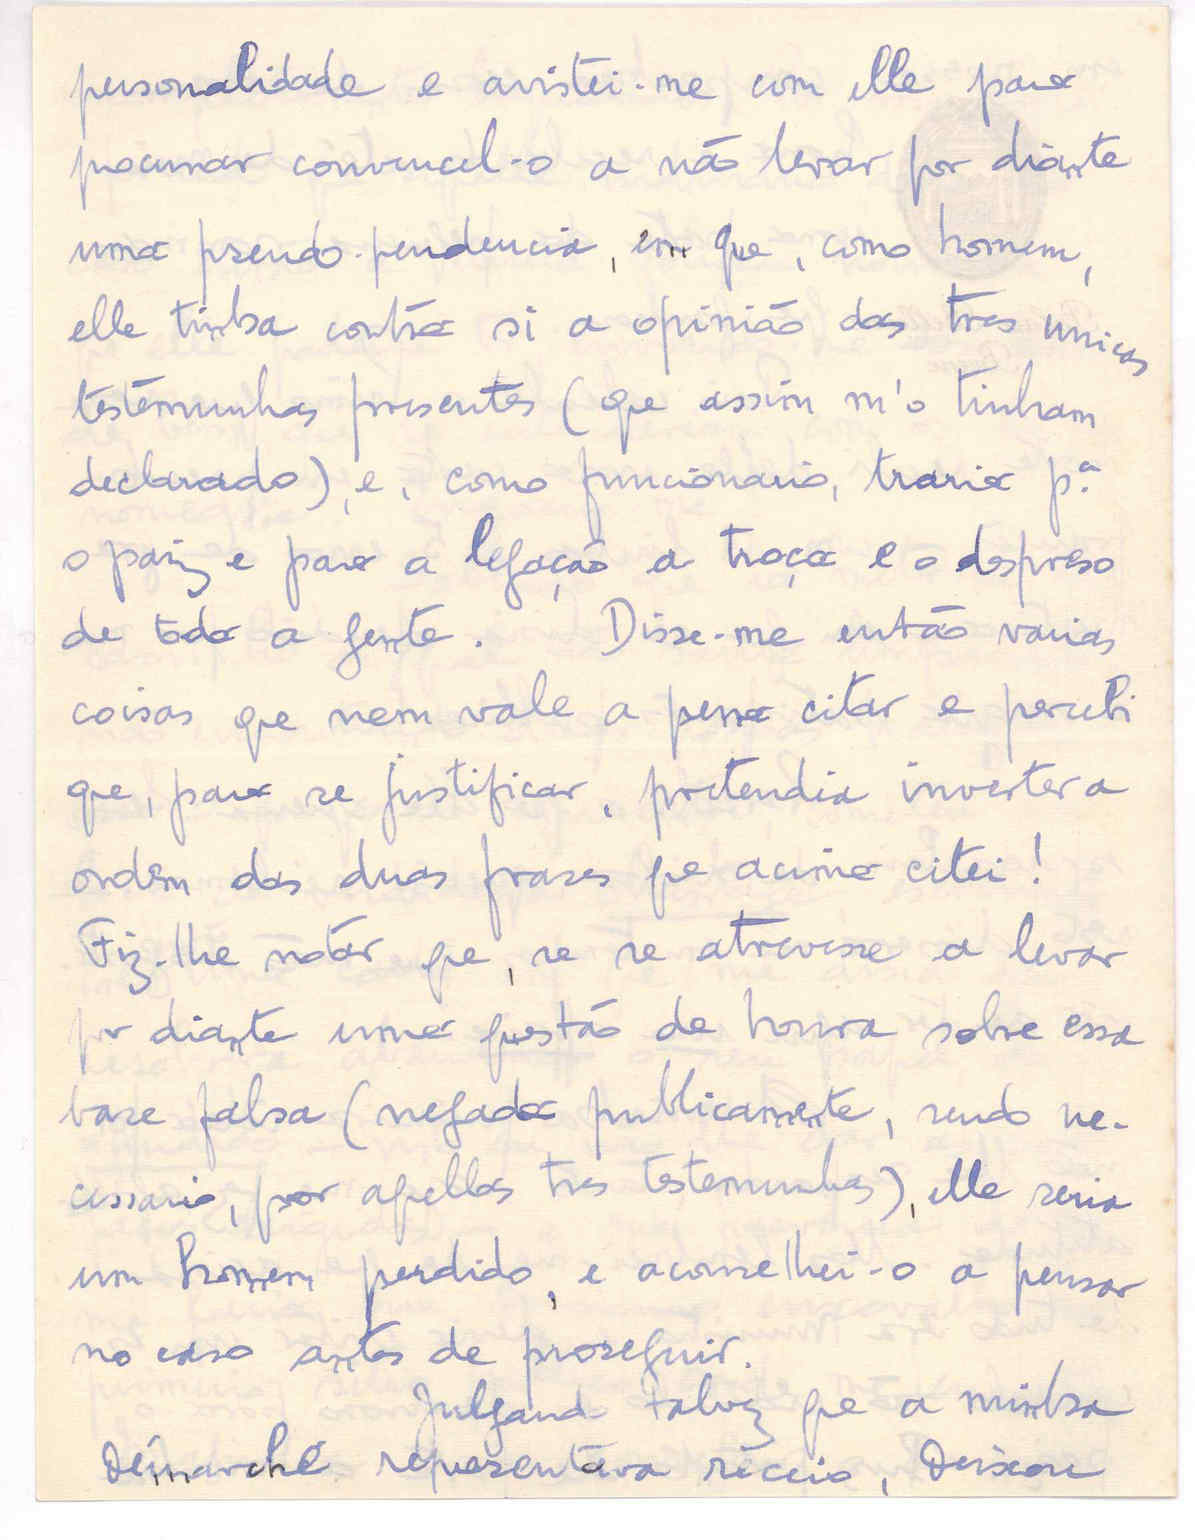 personalidade e avistei-me com elle para
procurar convencel-o a não levar por diante
uma pseudo-pendencia, em que, como homem,
elle tinha contra si a opinião das tres unicas
testemunhas presentes (que assim m'o tinham
declarado), e, como funcionario, traria p.ª
o paiz e para a legação a troça e o despreso
de toda a gente. Disse-me então varias
coisas que nem vale a pena citar e percebi
que, para se justificar, pretendia inverter a
ordem das duas frases que acima citei!
Fiz-lhe notar que, se se atrevesse a levar
por diante uma questão de honra sobre essa
base falsa (negada publicamente, sendo ne-
cessario, por aquellas tres testemunhas), elle seria
um homem perdido, e aconselhei-o a pensar
no caso antes de proseguir.
Julgando talvez que a minha
démarche representava receio, deixou